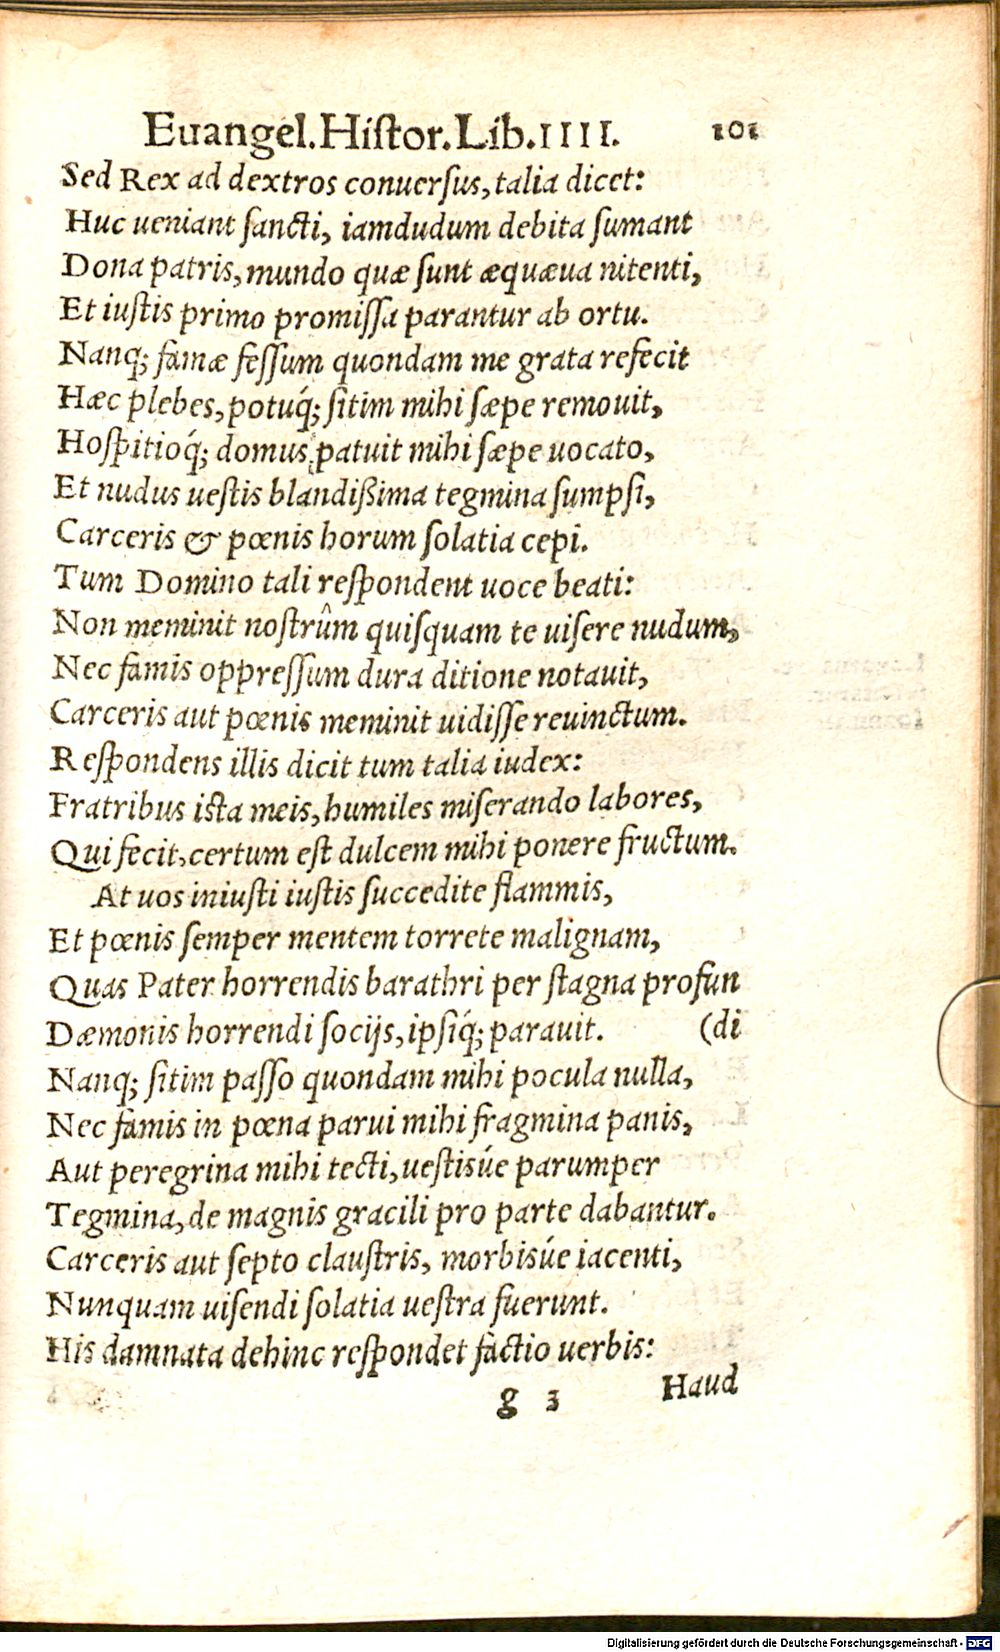 Euangel. Histor. Lib. IIII. 101
Sed Rex ad dextros conuersus, talia dicet:
Huc ueniant sancti, iamdudum debita sumant
Dona patris, mundo quæ sunt æquæua nitenti,
Et iustis primo promissa parantur ab ortu.
Nanq; famæ fessum quondam me grata refecit
Hæc plebes, potuq́; sitim mihi sæpe remouit,
Hospitioq́; domus patuit mihi sæpe uocato,
Et nudus uestis blandißima tegmina sumpsi,
Carceris & pœnis horum solatia cepi.
Tum Domino tali respondent uoce beati:
Non meminit nostrûm quisquam te uisere nudum,
Nec famis oppressum dura ditione notauit,
Carceris aut pœnis meminit uidisse reuinctum.
Respondens illis dicit tum talia iudex:
Fratribus ista meis, humiles miserando labores,
Qui fecit, certum est dulcem mihi ponere fructum.
At uos iniusti iustis succedite flammis,
Et pœnis semper mentem torrete malignam,
Quas Pater horrendis barathri per stagna profun
Dæmonis horrendi socijs, ipsiq́; parauit. (di
Nanq; sitim passo quondam mihi pocula nulla,
Nec famis in pœna parui mihi fragmina panis,
Aut peregrina mihi tecti, uestisúe parumper
Tegmina, de magnis gracili pro parte dabantur.
Carceris aut septo claustris, morbisúe iacenti,
Nunquam uisendi solatia uestra fuerunt.
His damnata dehinc respondet factio uerbis:
g 3 Haud
Digitalisierung gefördert durch die Deutsche Forschungsgemeinschaft - DFG